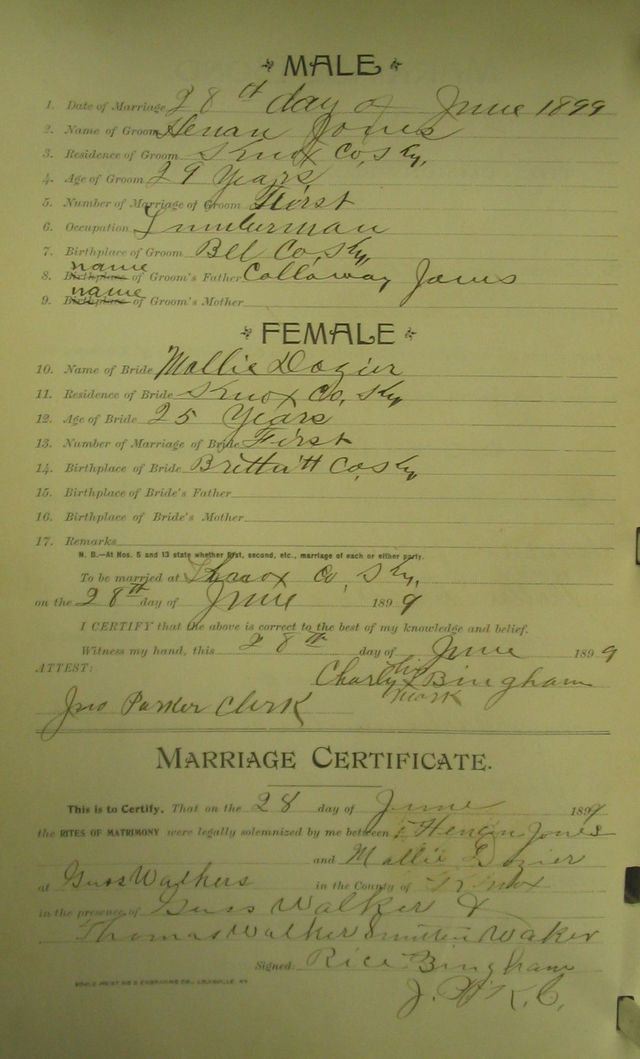 MALE
1. Date of Marriage 28th day of June 1899
2. Name of Groom Henan Jones
3. Residence of Groom Knox Co, Ky,
4. Age of Groom 29 Years
5. Number of Marriage of Groom First
6. Occupation Lumberman
7. Birthplace of Groom Bell Co, Ky,
name
8. Birthplace of Groom's Father Calloway Jones
name
9. Birthplace of Groom's Mother
FEMALE
10. Name of Bride Mallie Dozier
11. Residence of Bride Knox Co, Ky
12. Age of Bride 25 Years
13. Number of Marriage of Bride First
14. Birthplace of Bride Co, Ky
15. Birthplace of Bride's Father
16. Birthplace of Bride's Mother
17. Remarks
N. B.—At Nos. 5 and 13 state whether first, second, etc., marriage of each or either party.
To be married at Knox Co, Ky,
on the 28th day of June 1899
I CERTIFY that the above is correct to the best of my knowledge and belief.
Witness my hand, this 28th day of June 1899
ATTEST:
his
Charly X Bingham
mark
Jno Parker Clerk
MARRIAGE CERTIFICATE.
This is to Certify, That on the 28 day of June 1899
the RITES OF MATRIMONY were legally solemnized by me between Henan Jones
and Mallie Dozier
at Guss Walkers in the County of Knox
in the presence of Guss Walker &
Thomas Walker Waker
Signed Rice Bingham
J. P. K. C.